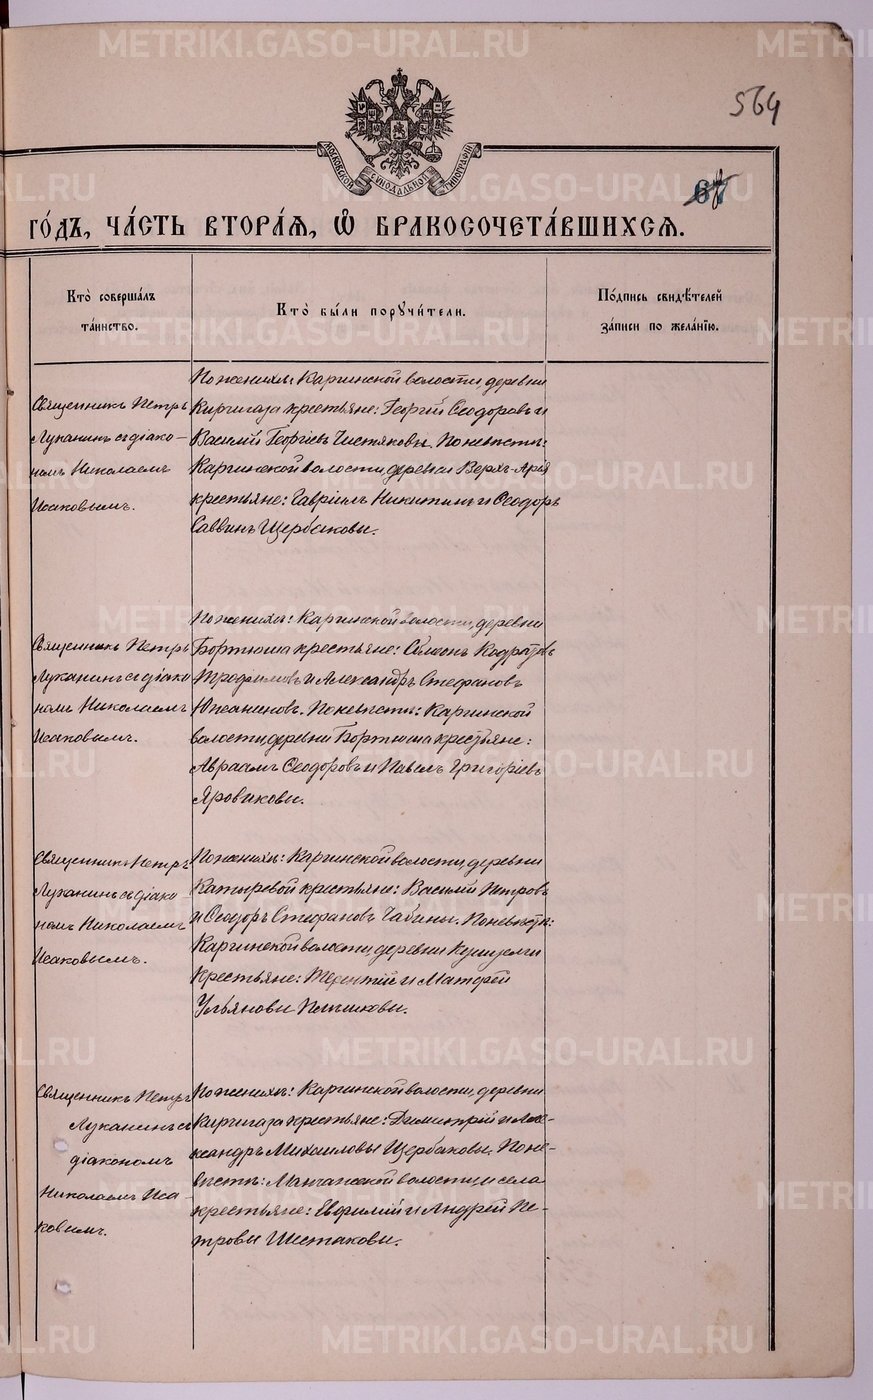 564
67
МОСКОВСКОЙ СѴНОДАЛЬНОЙ ТИПОГРАФІИ
го́дъ, ча́сть втора́я, ѡ҆ бракосочета́вшихся.
Кто̀ соверша́лъ
та́инство.
Кто̀ бы́ли порꙋчи́тели.
По́дпись свидѣ́телей
за́писи по жела́нїю.
Священникъ Петръ
Луканинъ съ діако-
номъ Николаемъ
Исаковымъ.
По женихѣ: Каргинской волости, деревни
Киргигаза крестьяне: Георгій Ѳеодоровъ и
Василій Георгіевъ Чистяковы. По невѣстѣ:
Каргинской волости, деревни Верхъ-Арія
крестьяне: Гавріилъ Никитинъ и Ѳеодоръ
Саввинъ Щербаковы.
Священникъ Петръ
Луканинъ съ діако
номъ Николаемъ
Исаковымъ.
По женихѣ: Каргинской волости, деревни
Бортюша крестьяне:
Трофимовъ и Александръ Стефановъ
По невѣстѣ: Каргинской
волости, деревни Бортюша крестьяне:
Авраамъ Ѳеодоровъ и Павелъ Григорьевъ
Яровиковы.
Священникъ Петръ
Луканинъ съ діако
номъ Николаемъ
Исаковымъ.
По женихѣ: Каргинской волости, деревни
Катыревой крестьяне: Василій Петровъ
и Ѳеодоръ Стефановъ Чабины. По невѣстѣ:
Каргинской волости, деревни
крестьяне: Терентій и Матфей
Ульяновы
Священникъ Петръ
Луканинъ съ
діакономъ
Николаемъ Иса-
ковымъ.
По женихѣ: Каргинской волости, деревни
Киргигаза крестьяне: Димитрій и Але-
ксандръ Михаиловы Щербаковы. По не-
вѣстѣ: Манчажской волости и села
крестьяне: Евфимій и Андрей Пе-
тровы Шестаковы.
METRIKI.GASO-URAL.RU